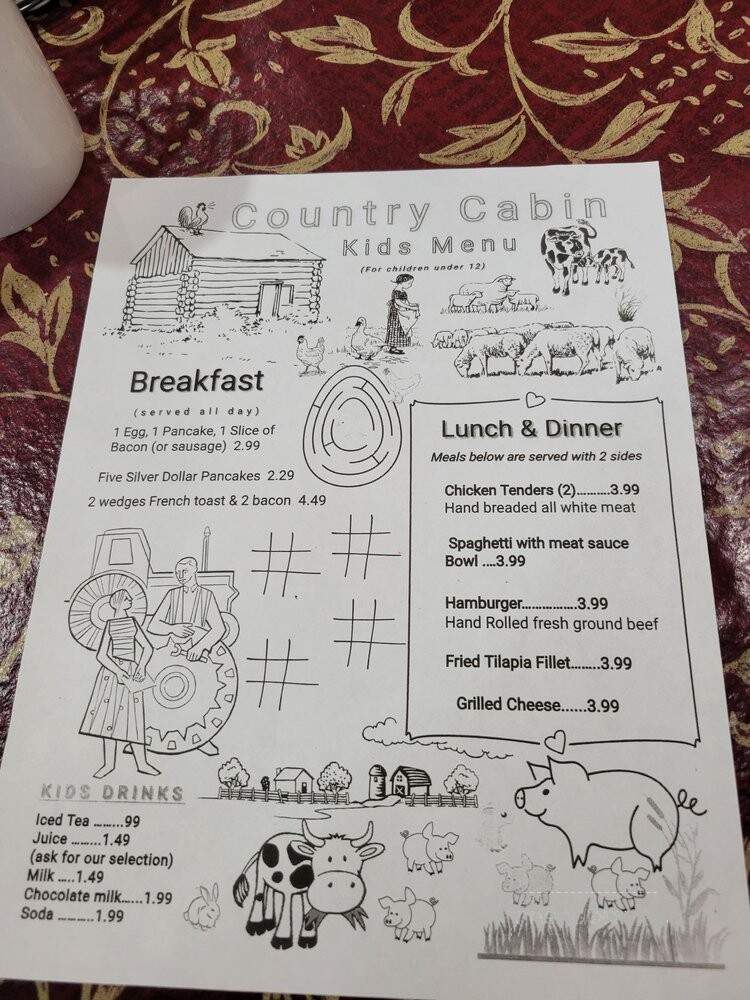 Country Cabin
Kids Menu
(For children under 12)
Breakfast
(served all day)
1 Egg, 1 Pancake, 1 Slice of
Bacon (or sausage) 2.99
Five Silver Dollar Pancakes 2.29
2 wedges French toast & 2 bacon 4.49
Lunch & Dinner
Meals below are served with 2 sides
Chicken Tenders (2)..........3.99
Hand breaded all white meat
Spaghetti with meat sauce
Bowl ....3.99
Hamburger.................3.99
Hand Rolled fresh ground beef
Fried Tilapia Fillet........3.99
Grilled Cheese......3.99
KIDS DRINKS
Iced Tea .........99
Juice .........1.49
(ask for our selection)
Milk .....1.49
Chocolate milk......1.99
Soda ...........1.99